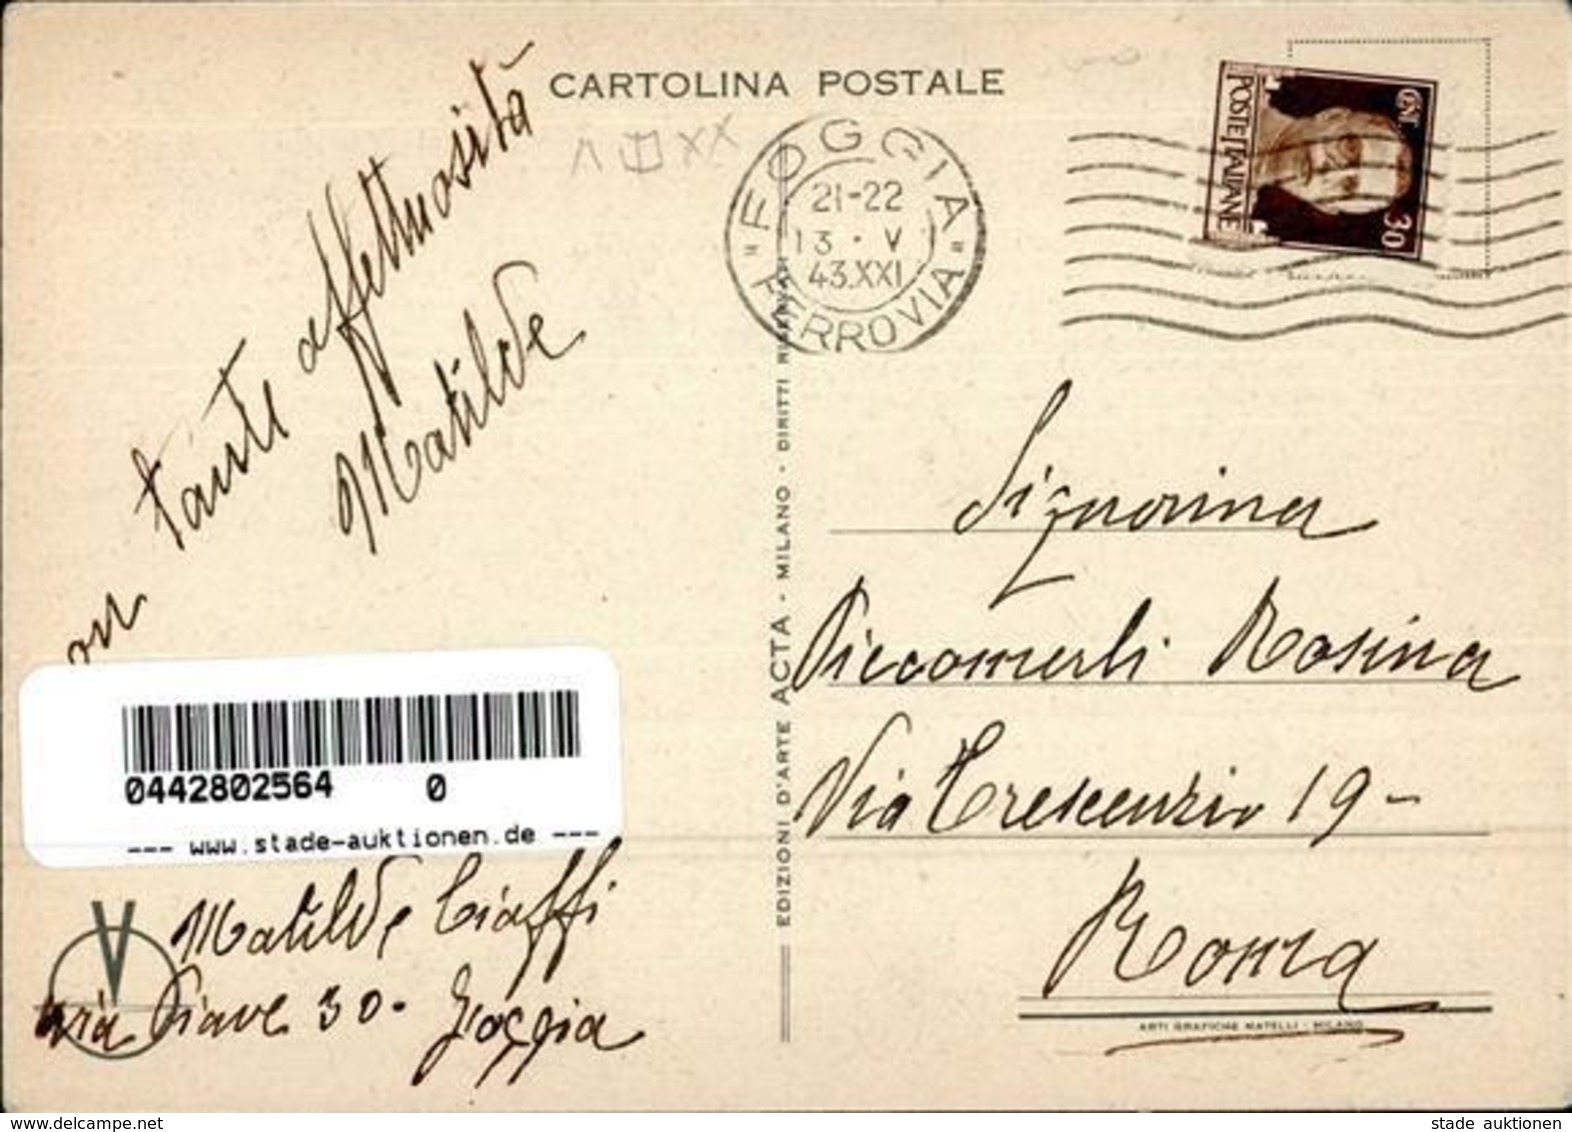 CARTOLINA POSTALE
FOGGIA
21-22
13 · V
43.XXI
" FERROVIA "
POSTE ITALIANE
CENT 30
con tante affettuosità
Matilde
Signorina
Rosina
Via Crescenzio 19 -
Roma
0442802564 0
--- www.stade-auktionen.de ---
Matilde Ciaffi
Via Piave 30 - Foggia
V
EDIZIONI D'ARTE ACTA - MILANO - DIRITTI RISERVATI
ARTI GRAFICHE MATELLI - MILANO
stade auktionen